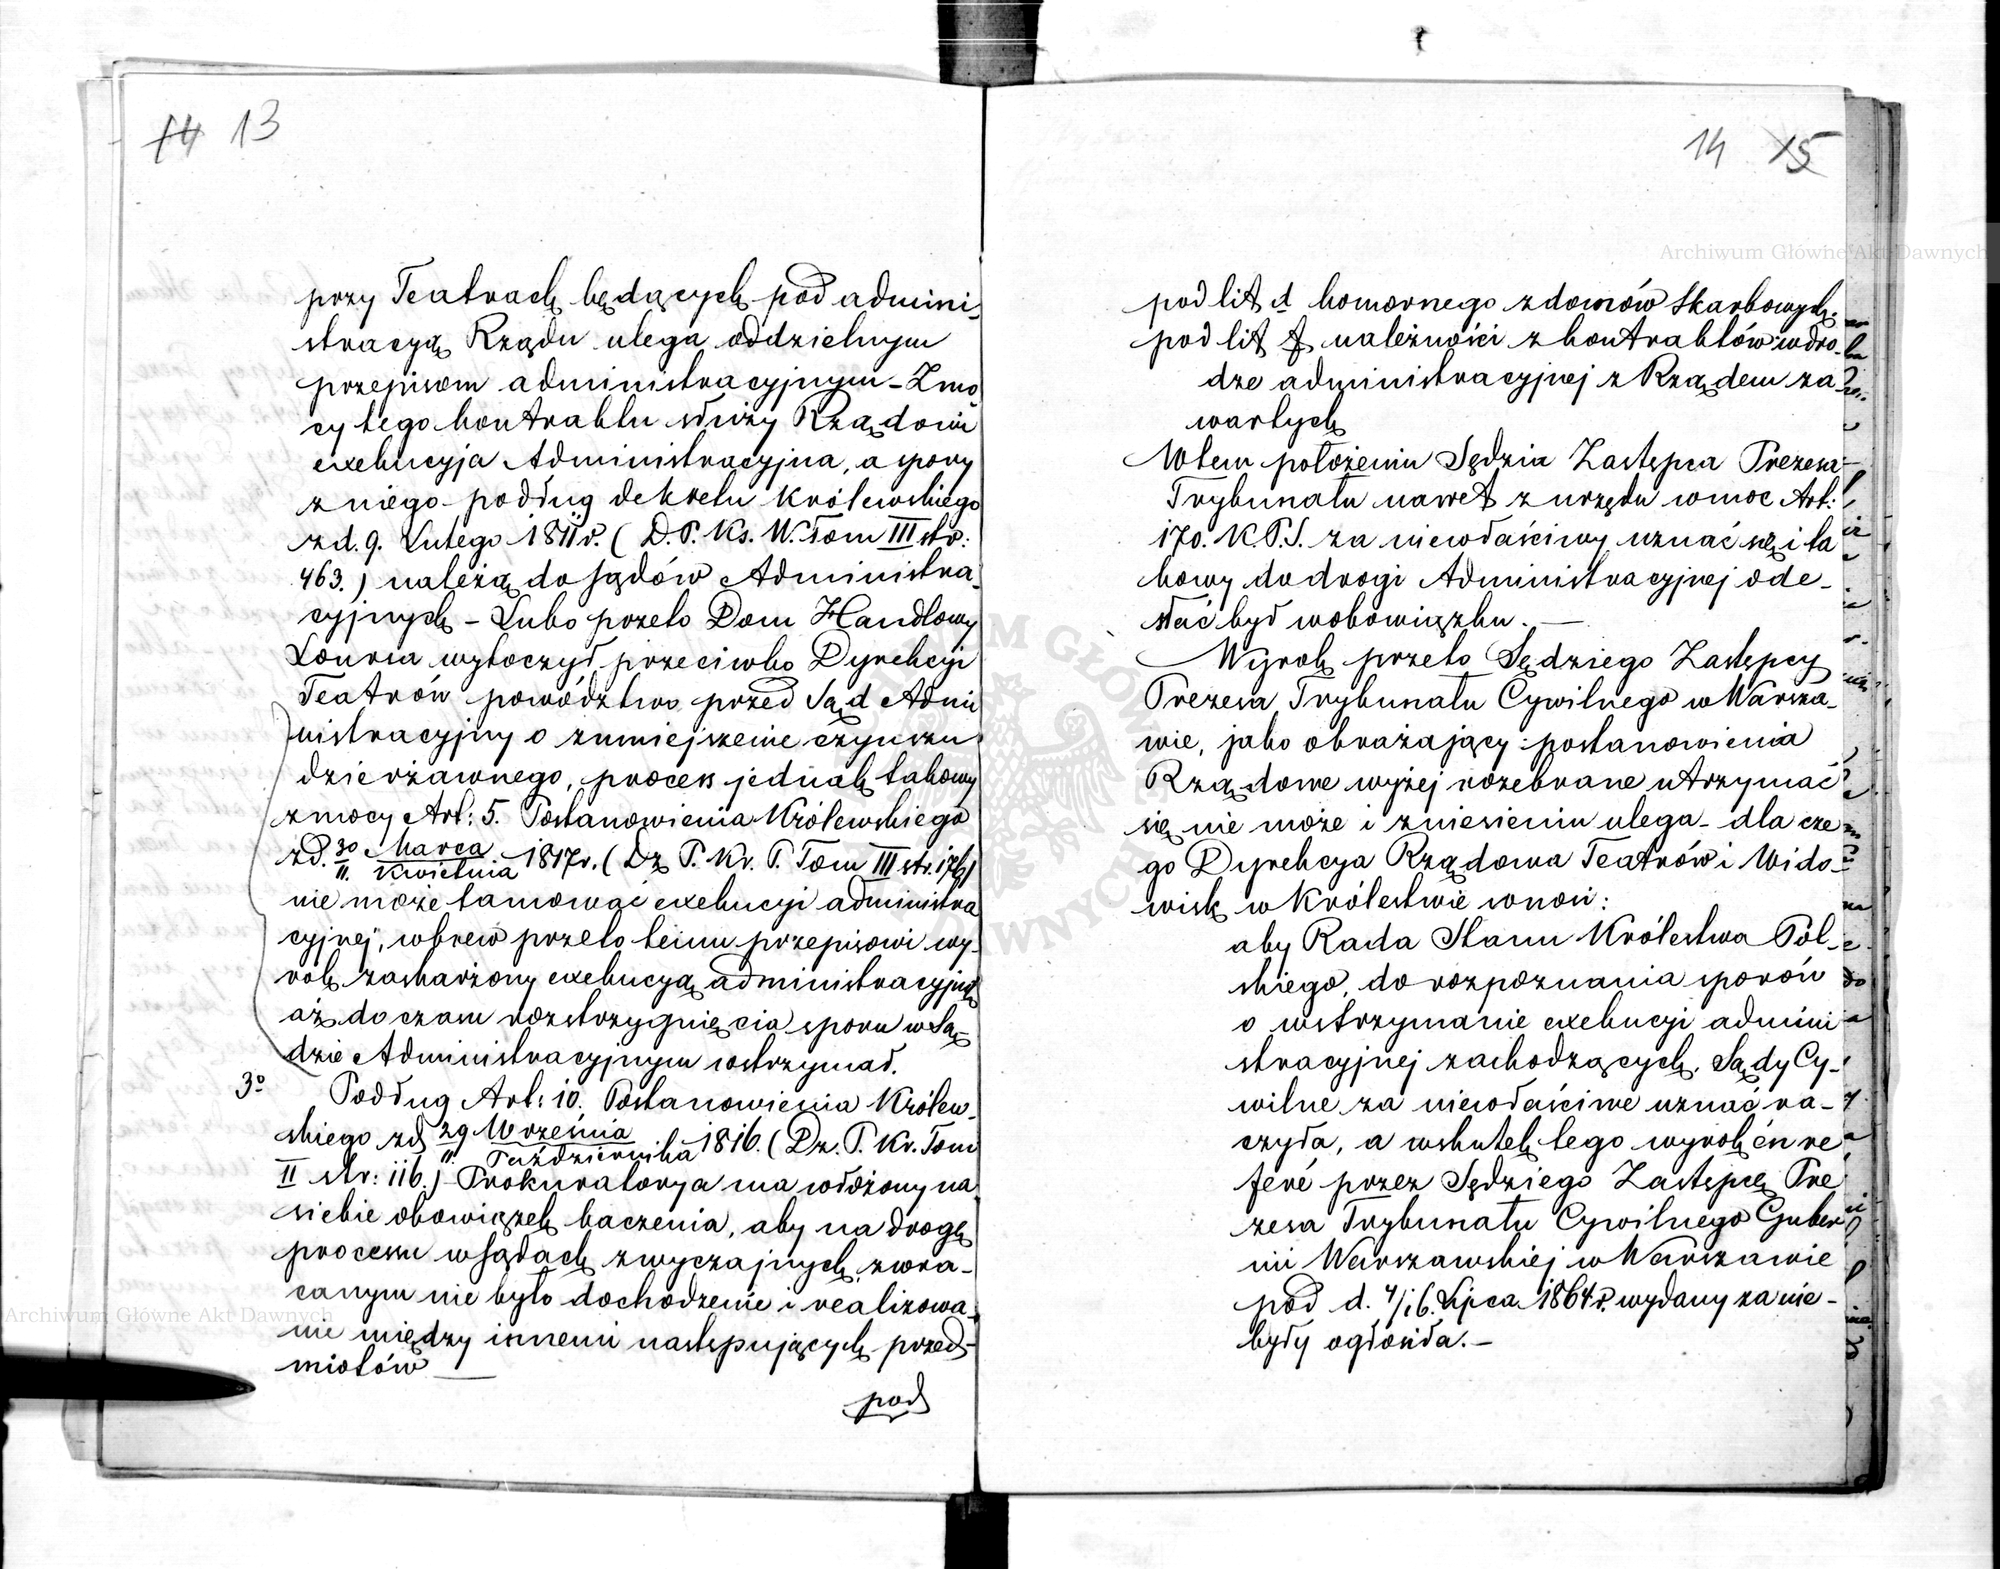 14 13
przy Teatrach będących pod admini-
stracyą Rządu ulega oddzielnym
przepisom administracyjnym – Z mo
cy tego kontraktu służy Rządowi
exekucyja Administracyjna, a spory
z niego podług dekretu Królewskiego
z d. 9. Lutego 1811 r. ( D. P. Ks. W. Tom III str:
463.) należą do sądów Administra-
cyjnych – Lubo przeto Dom Handlowy
Lourse wytoczył przeciwko Dyrekcji
Teatrów powództwo przed Sąd Admi
nistracyjny o zmniejszenie czynszu
dzierżawnego, process jednak takowy
z mocy Art: 5. Postanowienia Królewskiego
z d. 30 Marca / 11. Kwietnia 1817 r. ( Dz P. Kr. P. Tom III str. 176)
nie może tamować exekucyi administra
cyjnej, wbrew przeto temu przepisowi wy-
rok zaskarżony exekucyą administracyjną
aż do czasu rozstrzygnięcia sporu w Są-
dzie Administracyjnym wstrzymał.
3o Podług Art: 10. Postanowienia Królew-
skiego z d 29 Września / 11. Października 1816. ( Dz. P. Kr. Tom
II str: 116.) Prokuratorya ma włożony na
siebie obowiązek baczenia, aby na drogę
processu w sądach zwyczajnych zwra-
canym nie było dochodzenie i realizowa-
nie między innemi następujących przed-
miotów —
pod
14 15
pod lit d komornego z domów Skarbowych.
pod lit f należności z kontraktów w dro-
dze administracyjnej z Rządem za
wartych
W tem położeniu Sędzia Zastępca Prezesa
Trybunału nawet z urzędu w moc Art:
170. K.P.S. za niewłaściwy uznać się i ta
kowy do drogi Administracyjnej ode-
słać był w obowiązku. —
Wyrok przeto Sędziego Zastępcy
Prezesa Trybunału Cywilnego w Warsza-
wie, jako obrażający postanowienia
Rządowe wyżej rozebrane utrzymać
się nie może i zniesieniu ulega – dla cze
go Dyrekcya Rządowa Teatrów i Wido-
wisk w Królestwie wnosi:
aby Rada Stanu Królestwa Pol-
skiego, do rozpoznania sporów
o wstrzymanie exekucyi admini
stracyjnej zachodzących, Sądy Cy-
wilne za niewłaściwe uznać ra-
czyła, a wskutek tego wyrok en re
feré przez Sędziego Zastępcę Pre
zesa Trybunału Cywilnego Guber
nii Warszawskiej w Warszawie
pod d. 4/16. Lipca 1864 r. wydany za nie-
były ogłosiła. –
Archiwum Główne Akt Dawnych
Archiwum Główne Akt Dawnych